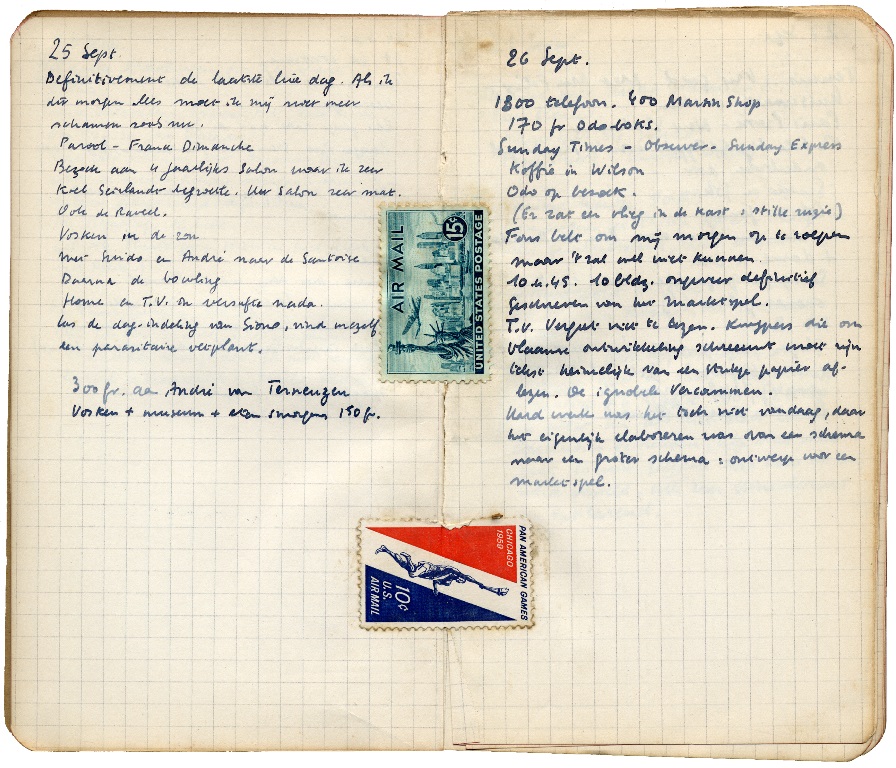 25 Sept.
Definitivement de laatste luie dag. Als ik
dit morgen lees moet ik mij niet meer
schamen zoals nu.
Parool - France Dimanche
Bezoek aan 4 jaarlijks Salon waar ik zeer
begroette. Uur Salon zeer mat.
Ook de Raveel.
Vosken in de zon
met Guido en André naar de
Daarna de bowling
Home en T.V. in versufte nada.
las de dag-indeling van , vind mezelf
een parasitaire vetplant.
300 fr. aan André van Terneuzen
Vosken + museum + eten smorgens 150 fr.
26 Sept.
1300 telefoon. 400 Martin Shop
170 fr Odo boks.
Sunday Times - Observer - Sunday Express
Koffie in Wilson
Odo op bezoek.
(Er zat een vlieg in de kast : stille ruzie)
Fons belt om mij morgen op te roepen
maar 't zal wel niet kunnen.
10 u. 45. 10 bldz. ongeveer definitief
geschreven van het Marktspel.
T.V. Vergat niet te lezen. Knuppers die om
Vlaamse ontwikkeling schreeuwt moet zijn
tekst heimelijk van een stukje papier af-
lezen. De ignobele Vercammen.
Hard werk was het toch niet vandaag, daar
het eigenlijk elaboreren was van een schema
naar een groter schema : ontwerp voor een
marktspel.
AIR MAIL
15¢
UNITED STATES POSTAGE
PAN AMERICAN GAMES
CHICAGO
1959
10¢
U.S.
AIR MAIL